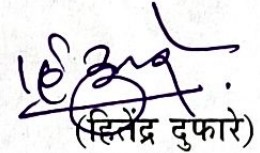 (हितेंद्र दुफारे)